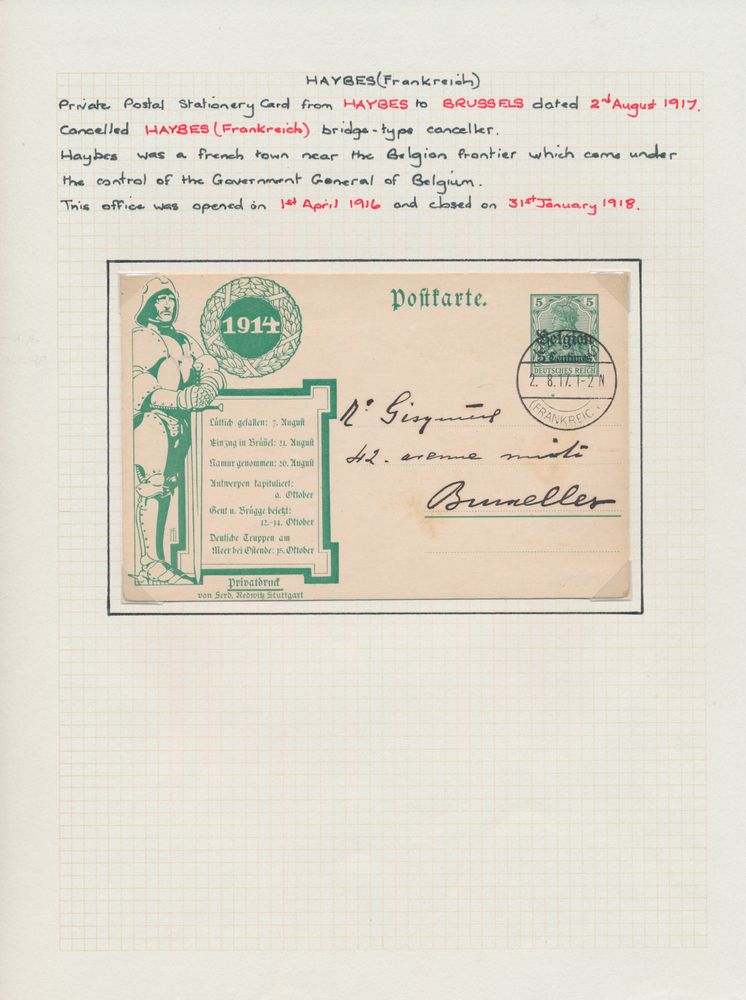 HAYBES (Frankreich)
Private Postal Stationery Card from HAYBES to BRUSSELS dated 2nd August 1917.
Cancelled HAYBES (Frankreich) bridge-type canceller.
Haybes was a french town near the Belgian frontier which came under
the control of the Government General of Belgium.
This office was opened on 1st April 1916 and closed on 31st January 1918.
1914
Postkarte.
5 5
Belgien
5 Centimes
DEUTSCHES REICH
2. 8.17. 1-2 N
(FRANKREIC
Lüttich gefallen: 7. August
Einzug in Brüssel: 21. August
Namur genommen: 26. August
Antwerpen kapituliert:
9. Oktober
Gent u. Brügge besetzt:
12.-14. Oktober
Deutsche Truppen am
Meer bei Ostende: 15. Oktober
42. avenue
Bruxelles
Privatdruck
von Ferd. Redwitz Stuttgart